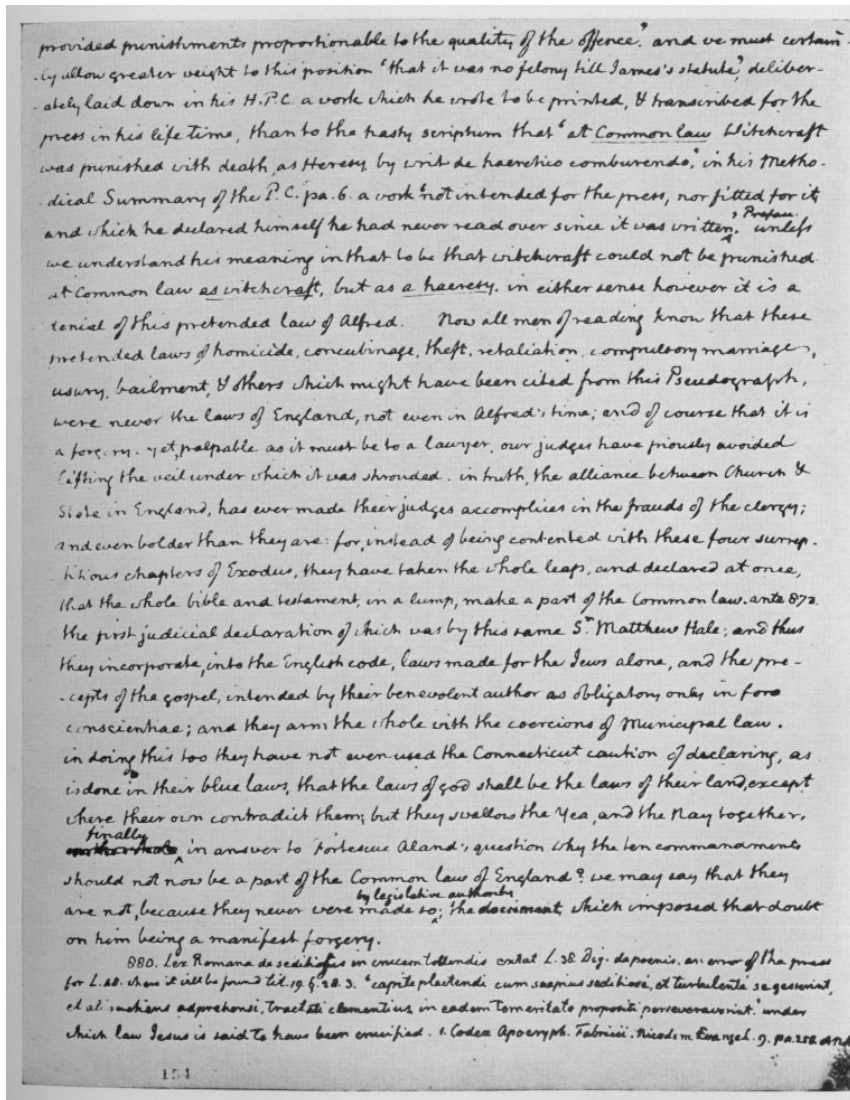 provided punishments proportionable to the quality of the offence.' and we must certain-
-ly allow greater weight to this position 'that it was no felony till James's statute,' deliber-
-ately laid down in his H.P.C. a work which he wrote to be printed, & transcribed for the
press in his life time, than to the hasty scriptum that 'at Common law Witchcraft
was punished with death, as Heresy by writ de haeretico comburendo,' in his Metho-
-dical Summary of the P.C. pa. 6. a work 'not intended for the press, nor fitted for it,
and which he declared himself he had never read over since it was written,' Preface. unless
we understand his meaning in that to be that witchcraft could not be punished
at Common law as witchcraft, but as a haeresy. in either sense however it is a
denial of this pretended law of Alfred. Now all men of reading know that these
pretended laws of homicide, concubinage, theft, retaliation, compulsory marriage,
usury, bailment, & others which might have been cited from this Pseudograph,
were never the laws of England, not even in Alfred's time; and of course that it is
a forgery. yet, palpable as it must be to a lawyer, our judges have piously avoided
lifting the veil under which it was shrouded. in truth, the alliance between Church &
State in England, has ever made their judges accomplices in the frauds of the clergy;
and even bolder than they are: for, instead of being contented with these four surrep-
titious chapters of Exodus, they have taken the whole leap, and declared at once,
that the whole bible and testament, in a lump, make a part of the Common law. ante 873.
the first judicial declaration of which was by this same Sr. Matthew Hale; and thus
they incorporate, into the English code, laws made for the Jews alone, and the pre-
-cepts of the gospel, intended by their benevolent author as obligatory only in foro
conscientiae; and they arm the whole with the coercions of Municipal law.
in doing this too they have not even used the Connecticut caution of declaring, as
is done in their blue laws, that the laws of god shall be the laws of their land, except
where their own contradict them; but they swallow the Yea, and the Nay together.
finally in answer to Fortescue Aland's question why the ten commandments
should not now be a part of the Common law of England? we may say that they
are not, because they never were made so by legislative authority; the document, which imposed that doubt
on him being a manifest forgery.
880. Lex Romana de seditiosis in crucem tollendis extat L. 38. Dig. de poenis. an error of the press
for L. 48. where it will be found tit. 19. §. 28. 3. 'capite plectendi cum saepius seditiosè, et turbulentè se gesserint,
et aliquotiens adprehensi, tractati clementius, in eadem temeritate propositi perseveraverint.' under
which law Jesus is said to have been crucified. 1. Codex Apocryph. Fabricii. Nicodem. Evangel. 9. pa. 258. and
154